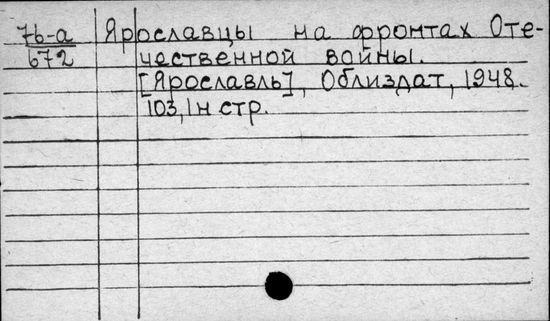 7б-а Ярославцы на фронтах Оте-
672 чественной войны.
[Ярославль], Облиздат, 1948.
103, 1н стр.